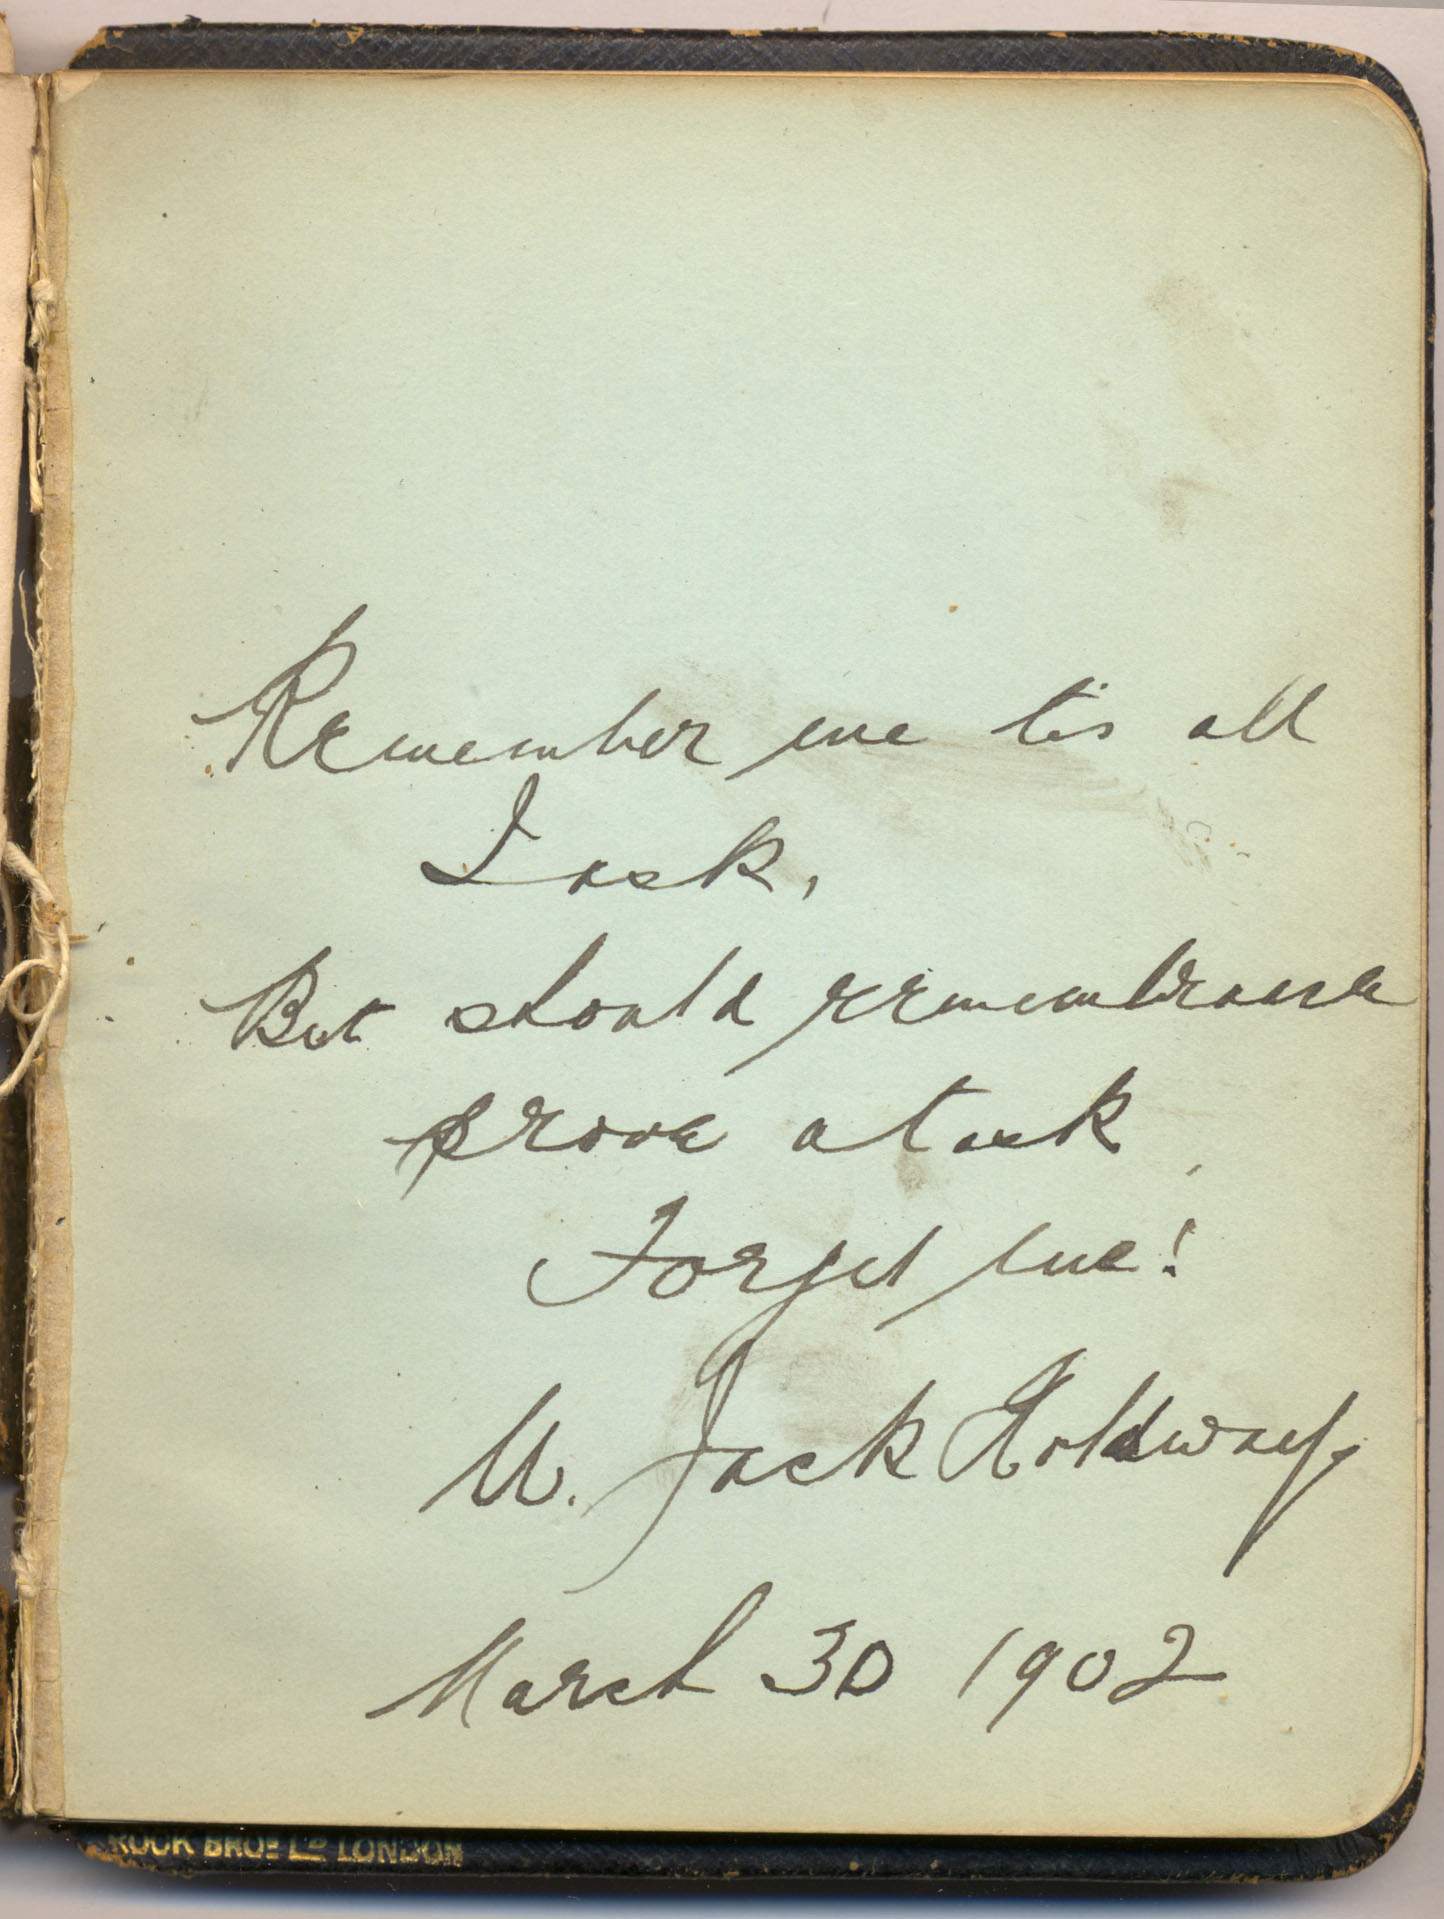 Remember me tis all
I ask,
But should remembrance
prove a task
Forget me!
W. Jack Holdway.
March 30 1902
ROCK BROS LD LONDON